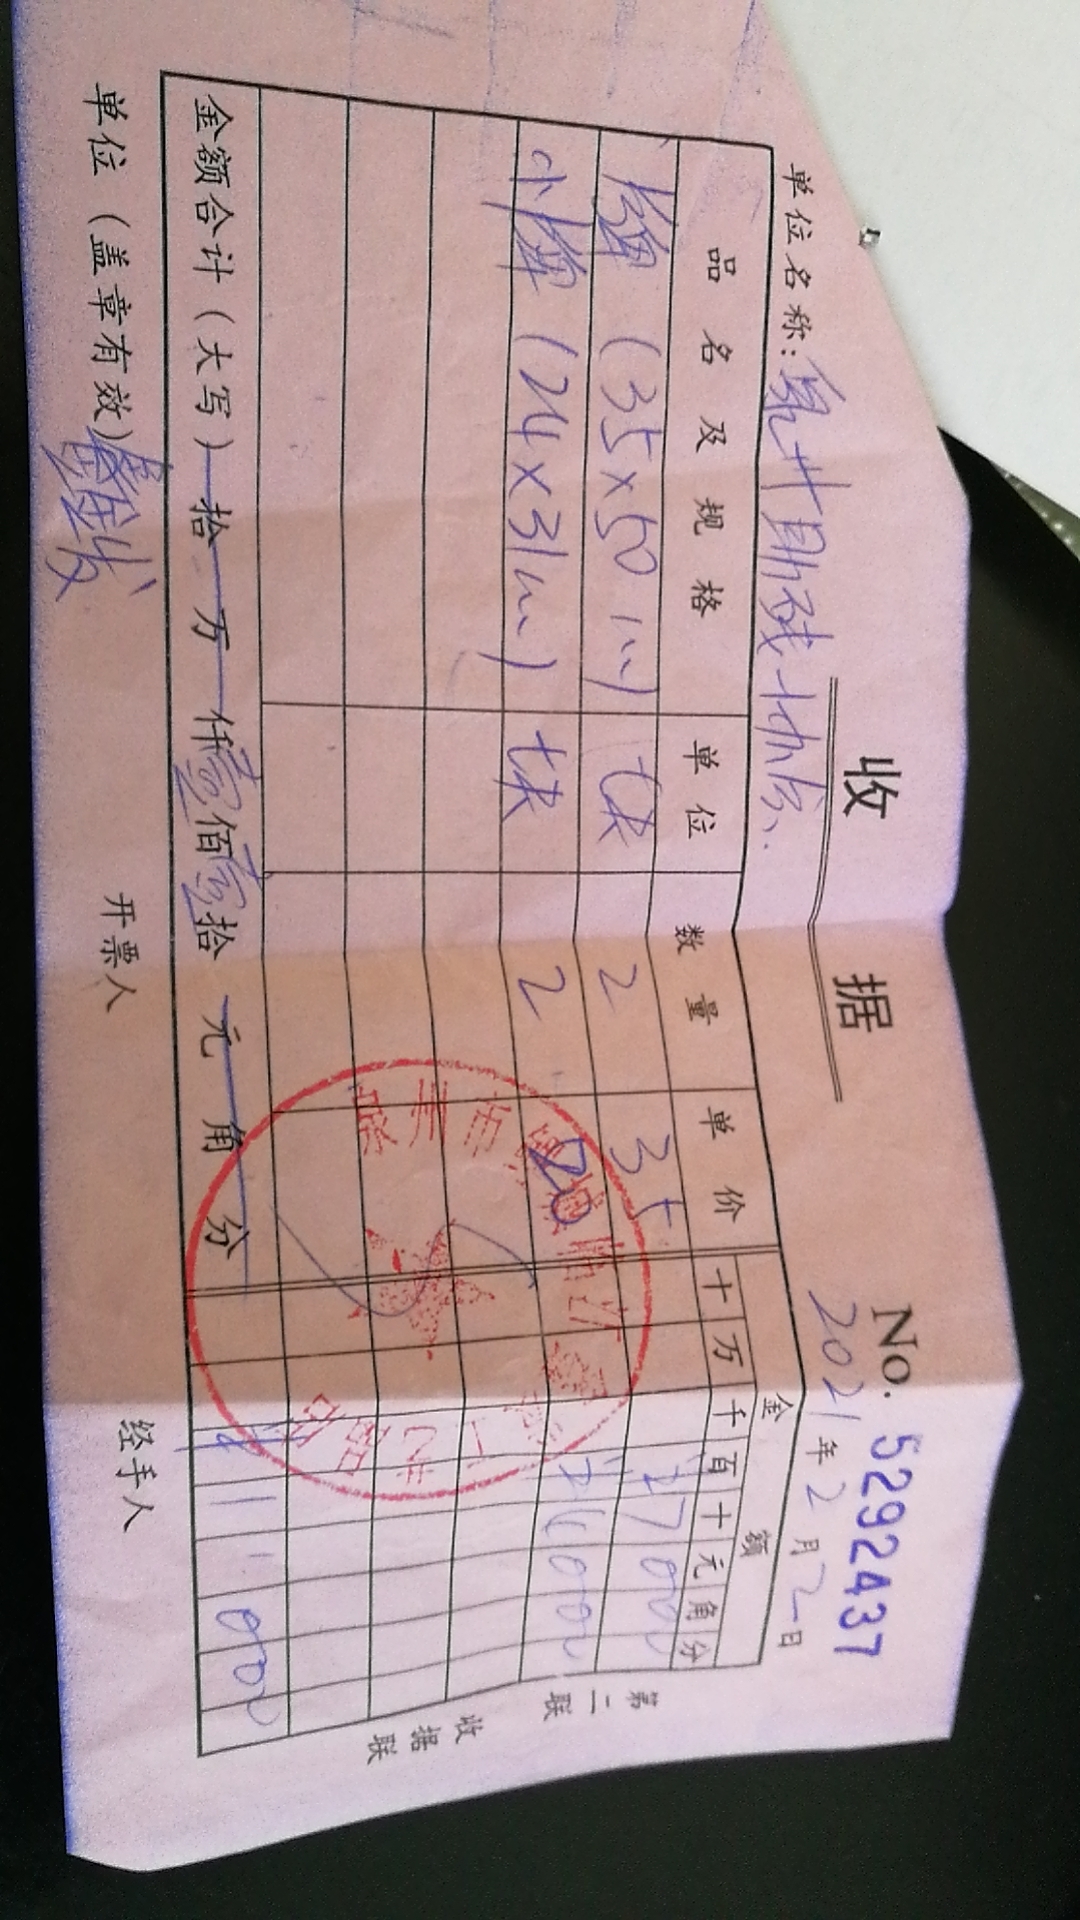 收据
No. 5292437
2021年2月2日
单位名称:
品名及规格 单位 数量 单价 金额
十 万 千 百 十 元 角 分
(35×50cm) 块 2 35 7000
小 (24×31cm) 块 2 20 4000
金额合计(大写) 拾 万 仟 壹佰壹拾 元 角 分 ¥11000
单位(盖章有效) 开票人 经手人
第二联 收据联